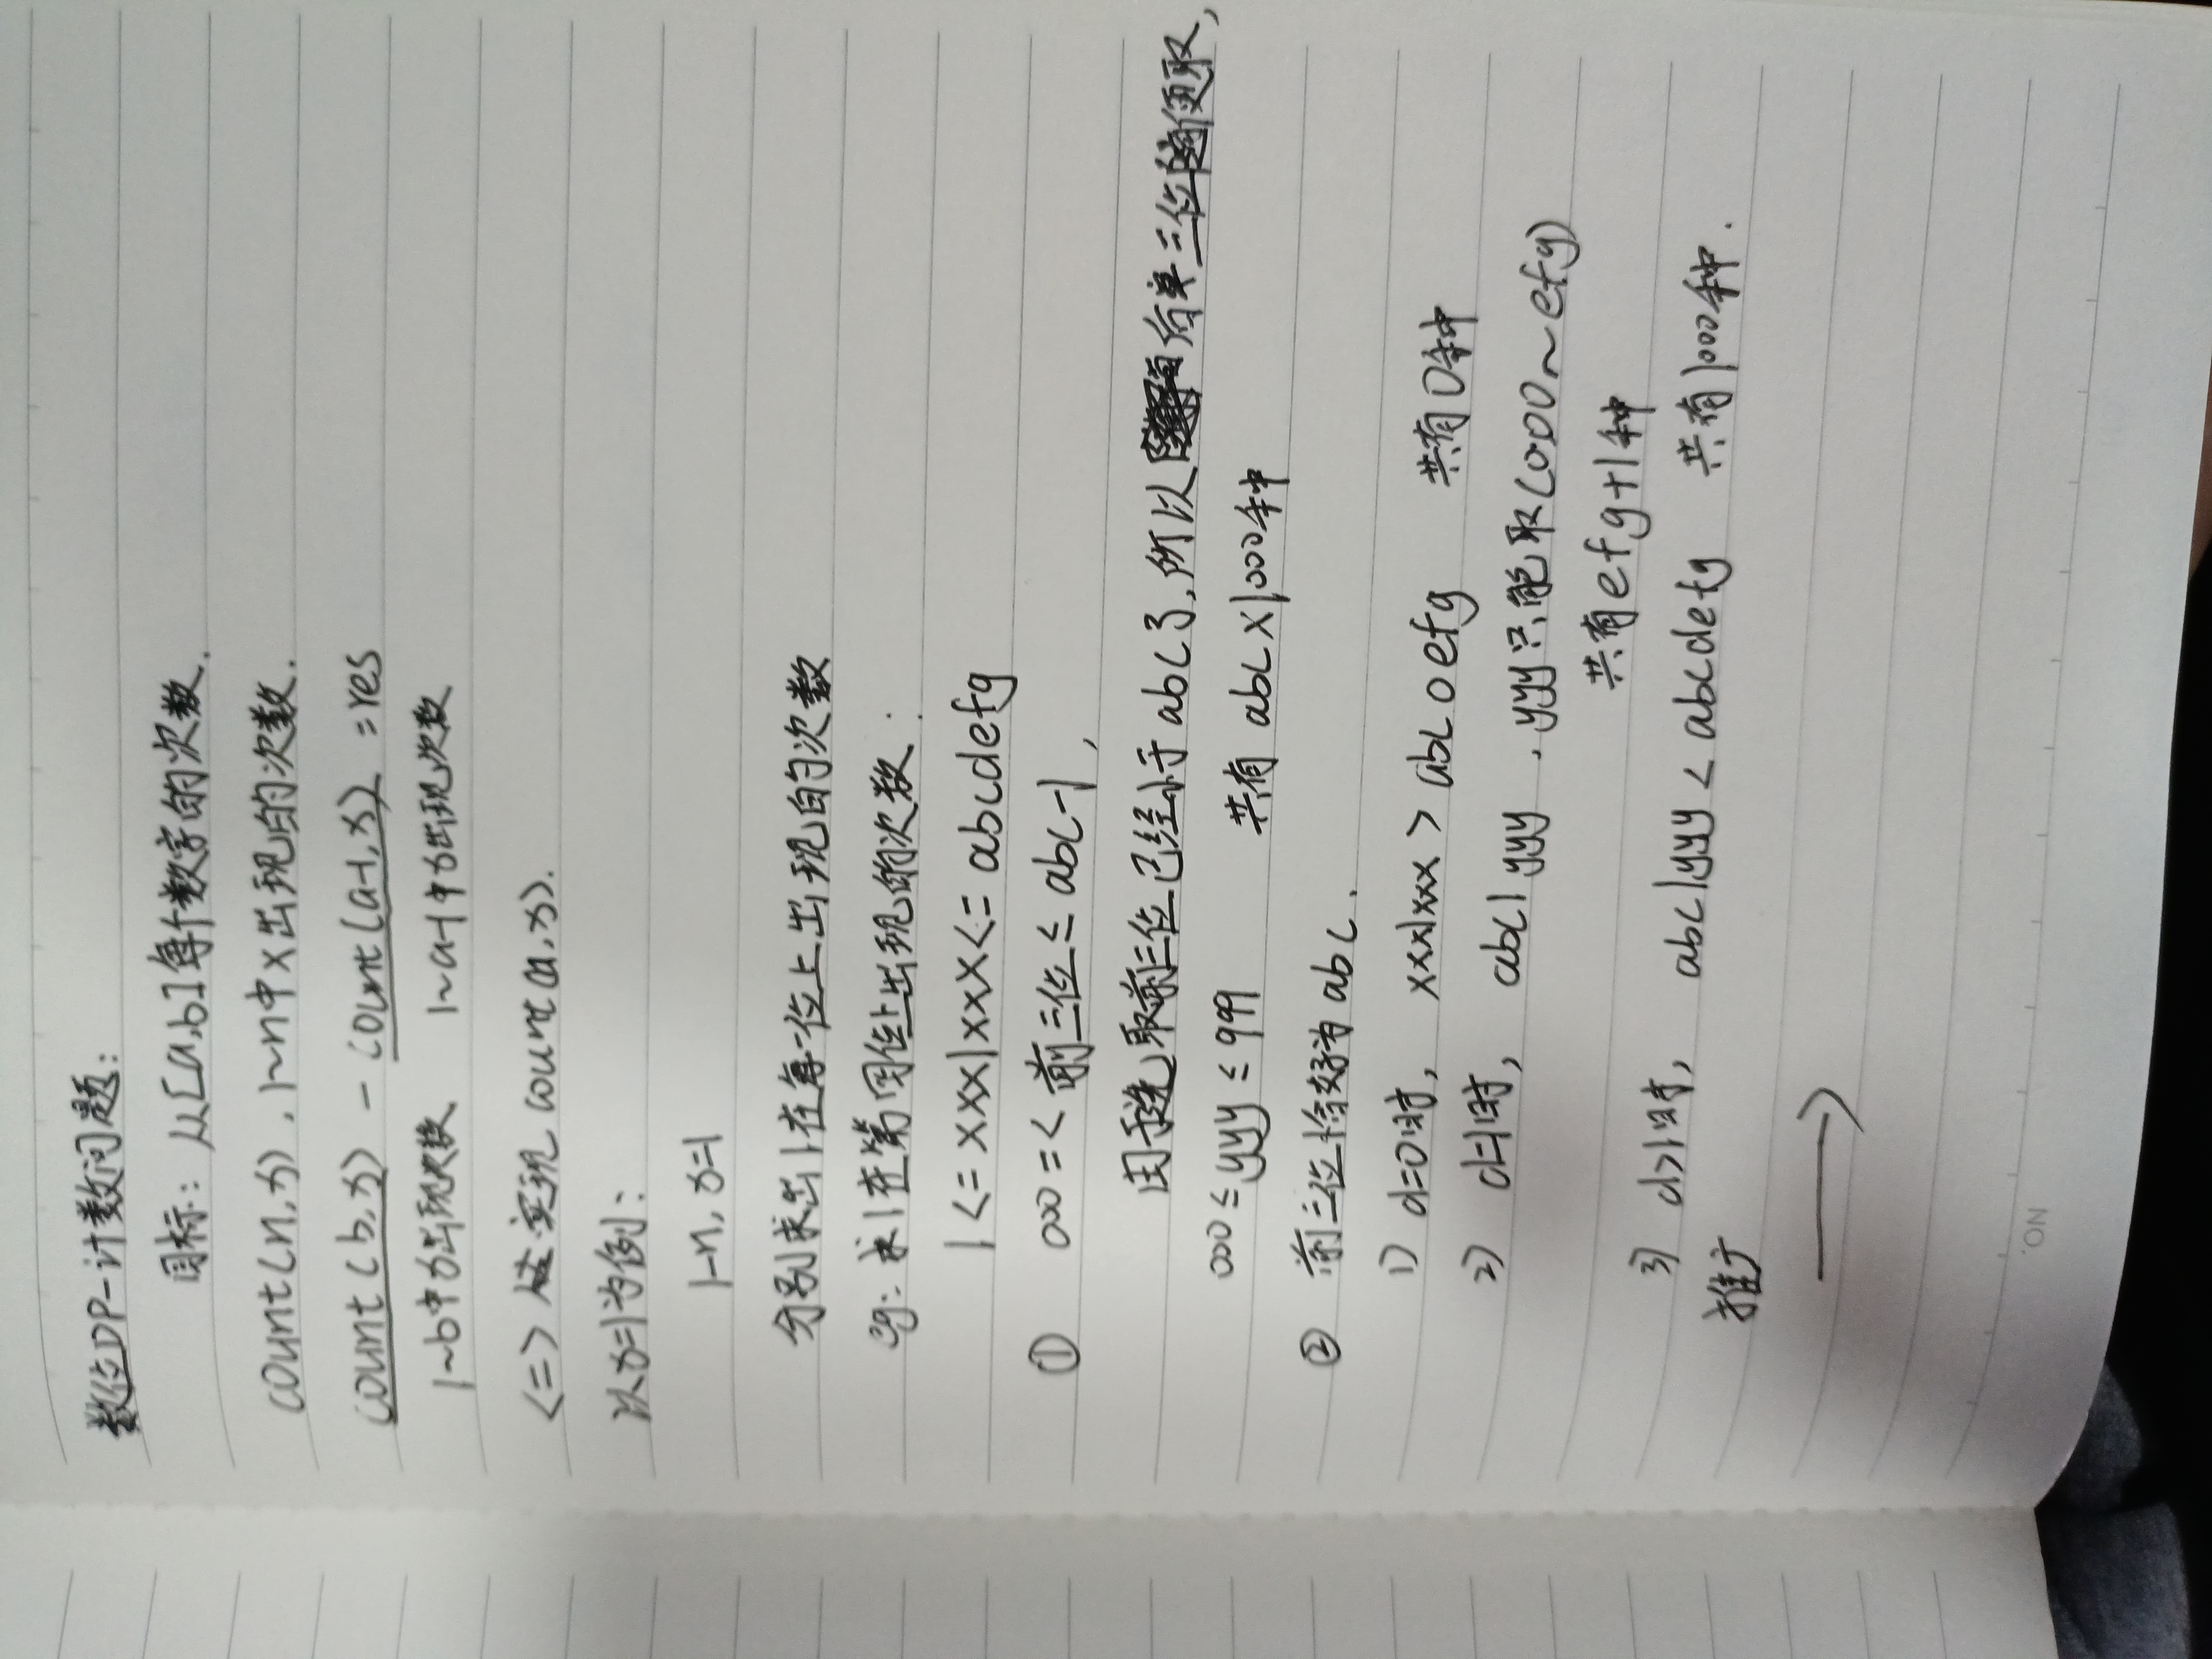 数位DP-计数问题:
目标: 从[a,b]每个数字的次数.
count(n,x), 1~n中x出现的次数.
count(b,x) - count(a-1,x) = res
1~b中x出现次数 1~a-1中x出现次数
<=> 实现 count(n,x).
以x=1为例:
1-n, x=1
分别求出1在每一位上出现的次数
eg: 求1在第四位上出现的次数.
1<= xxx1xxx<= abcdefg
① 000 =< 前三位 ≤ abc-1,
由于选取前三位已经小于abc了,所以后单三位随便取,
000 ≤ yyy ≤ 999 共有 abc×1000种
② 前三位恰好为abc.
1) d=0时, xxx1xxx > abc0efg 共有0种
2) d=1时, abc1yyy, yyy只能取(000~efg)
共有efg+1种
3) d>1时, abc1yyy < abcdefg 共有1000种.
推广
→
NO.